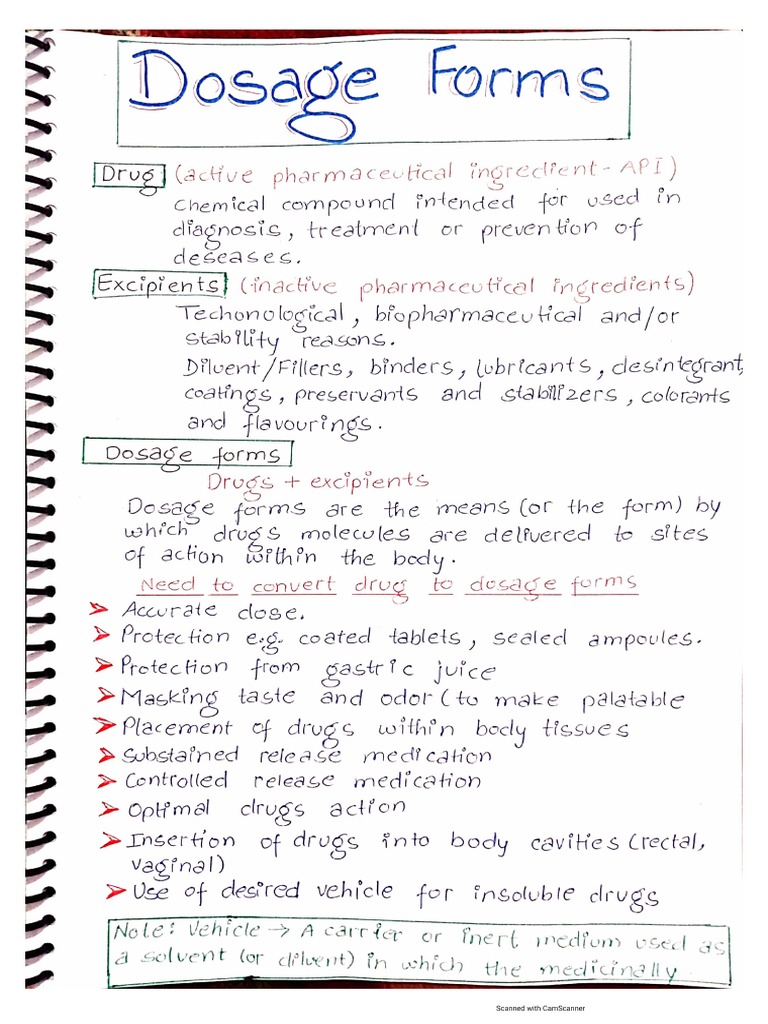 Dosage Forms
Drug (active pharmaceutical ingredient - API)
chemical compound intended for used in
diagnosis, treatment or prevention of
deseases.
Excipients (inactive pharmaceutical ingredients)
Techonological, biopharmaceutical and/or
stability reasons.
Diluent/Fillers, binders, lubricants, desintegrant,
coatings, preservants and stabilizers, colorants
and flavourings.
Dosage forms
Drugs + excipients
Dosage forms are the means (or the form) by
which drugs molecules are delivered to sites
of action within the body.
Need to convert drug to dosage forms
➢ Accurate dose.
➢ Protection e.g. coated tablets, sealed ampoules.
➢ Protection from gastric juice
➢ Masking taste and odor (to make palatable
➢ Placement of drugs within body tissues
➢ Substained release medication
➢ Controlled release medication
➢ Optimal drugs action
➢ Insertion of drugs into body cavities (rectal,
vaginal)
➢ Use of desired vehicle for insoluble drugs
Note: Vehicle → A carrier or inert medium used as
a solvent (or diluent) in which the medicinally
Scanned with CamScanner